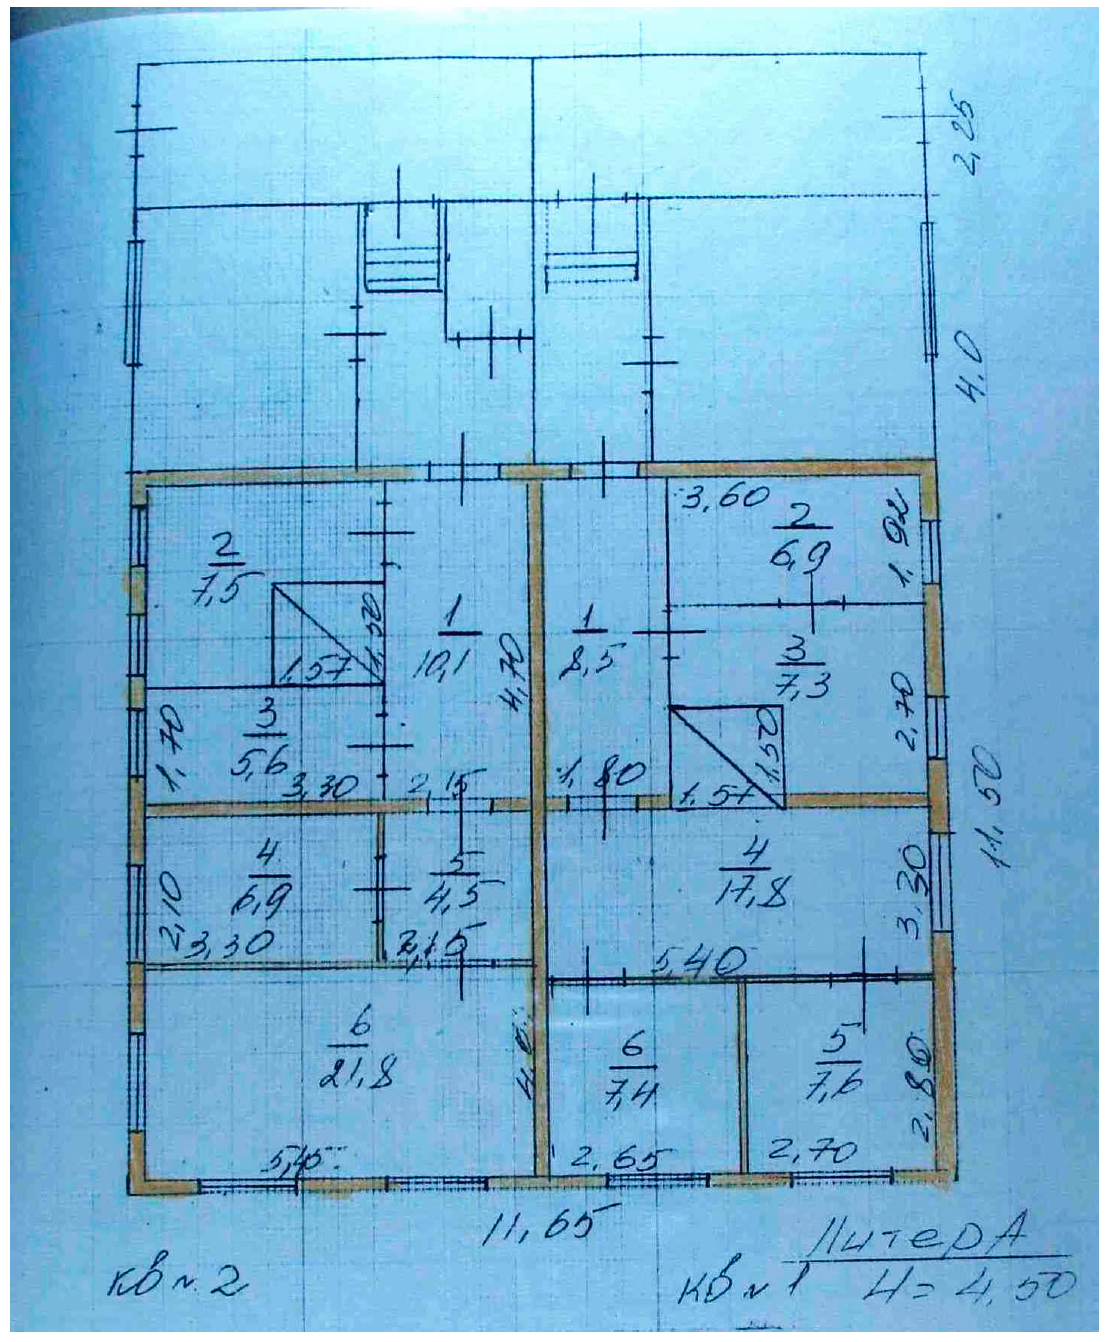 2,25
4,0
3,60
2
6,9
1,92
2
7,5
1,50
1,57
1
10,1
4,70
1
8,5
3
7,3
2,70
1,50
1,57
1,70
3
5,6
3,30
2,15
1,80
11,50
4
6,9
2,10
3,30
5
4,5
2,15
4
17,8
3,30
5,40
6
21,8
4,0
5,45
6
7,4
2,65
5
7,6
2,80
2,70
11,65
Литер А
кв № 2
кв № 1
H = 4,50